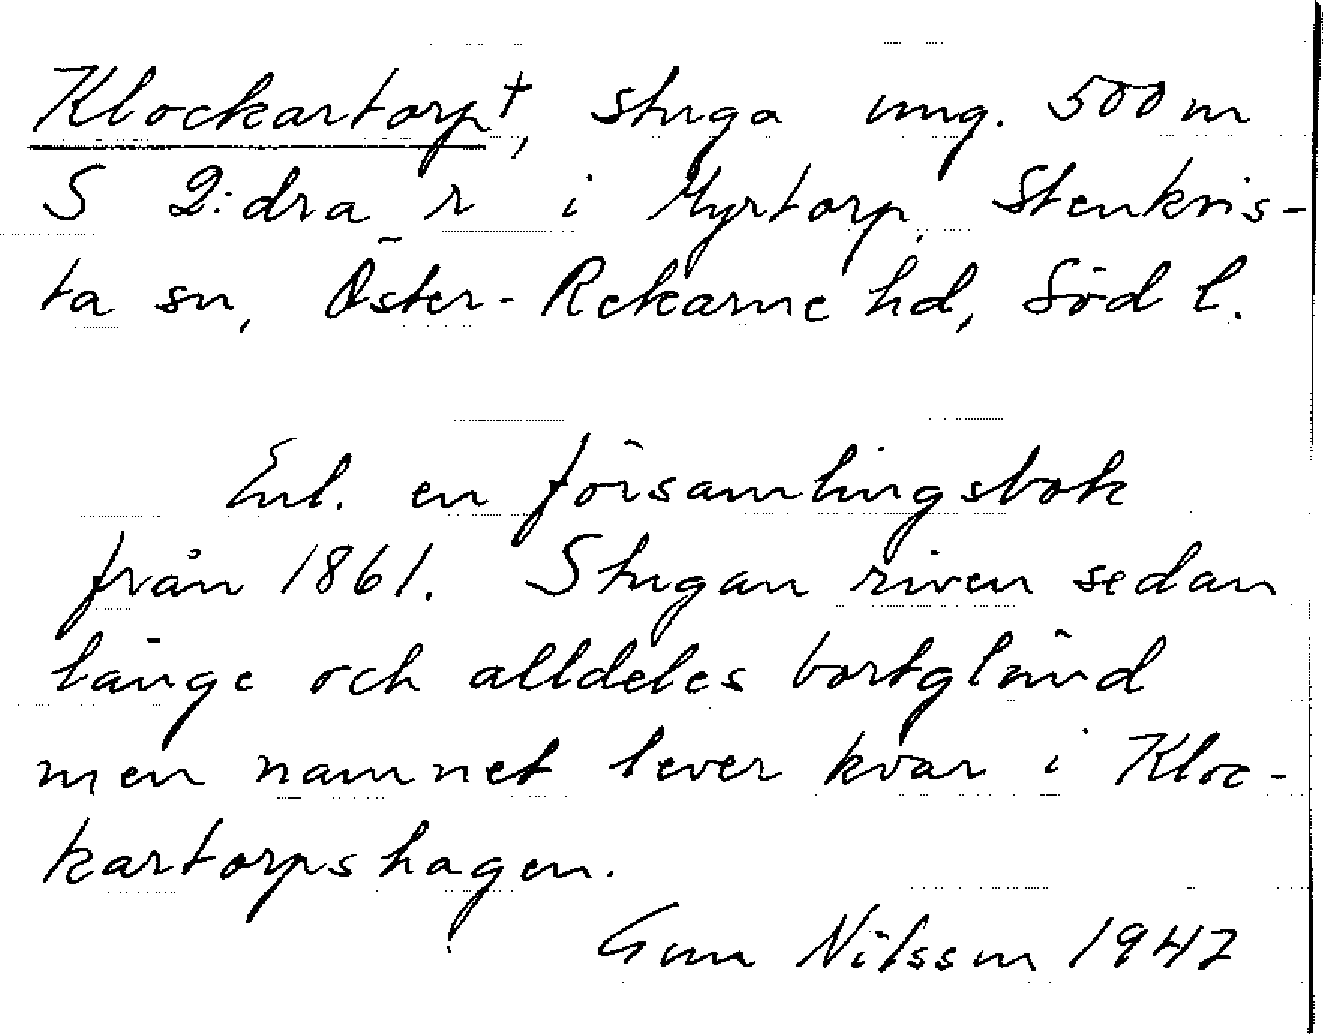 Klockartorp†, stuga ung. 500 m
S 2:dra r i Myrtorp, Stenkvis-
ta sn, Öster-Rekarne hd, Söd l.
Enl. en församlingsbok
från 1861. Stugan riven sedan
länge och alldeles bortglömd
men namnet lever kvar i Kloc-
kartorpshagen.
Gun Nilsson 1947